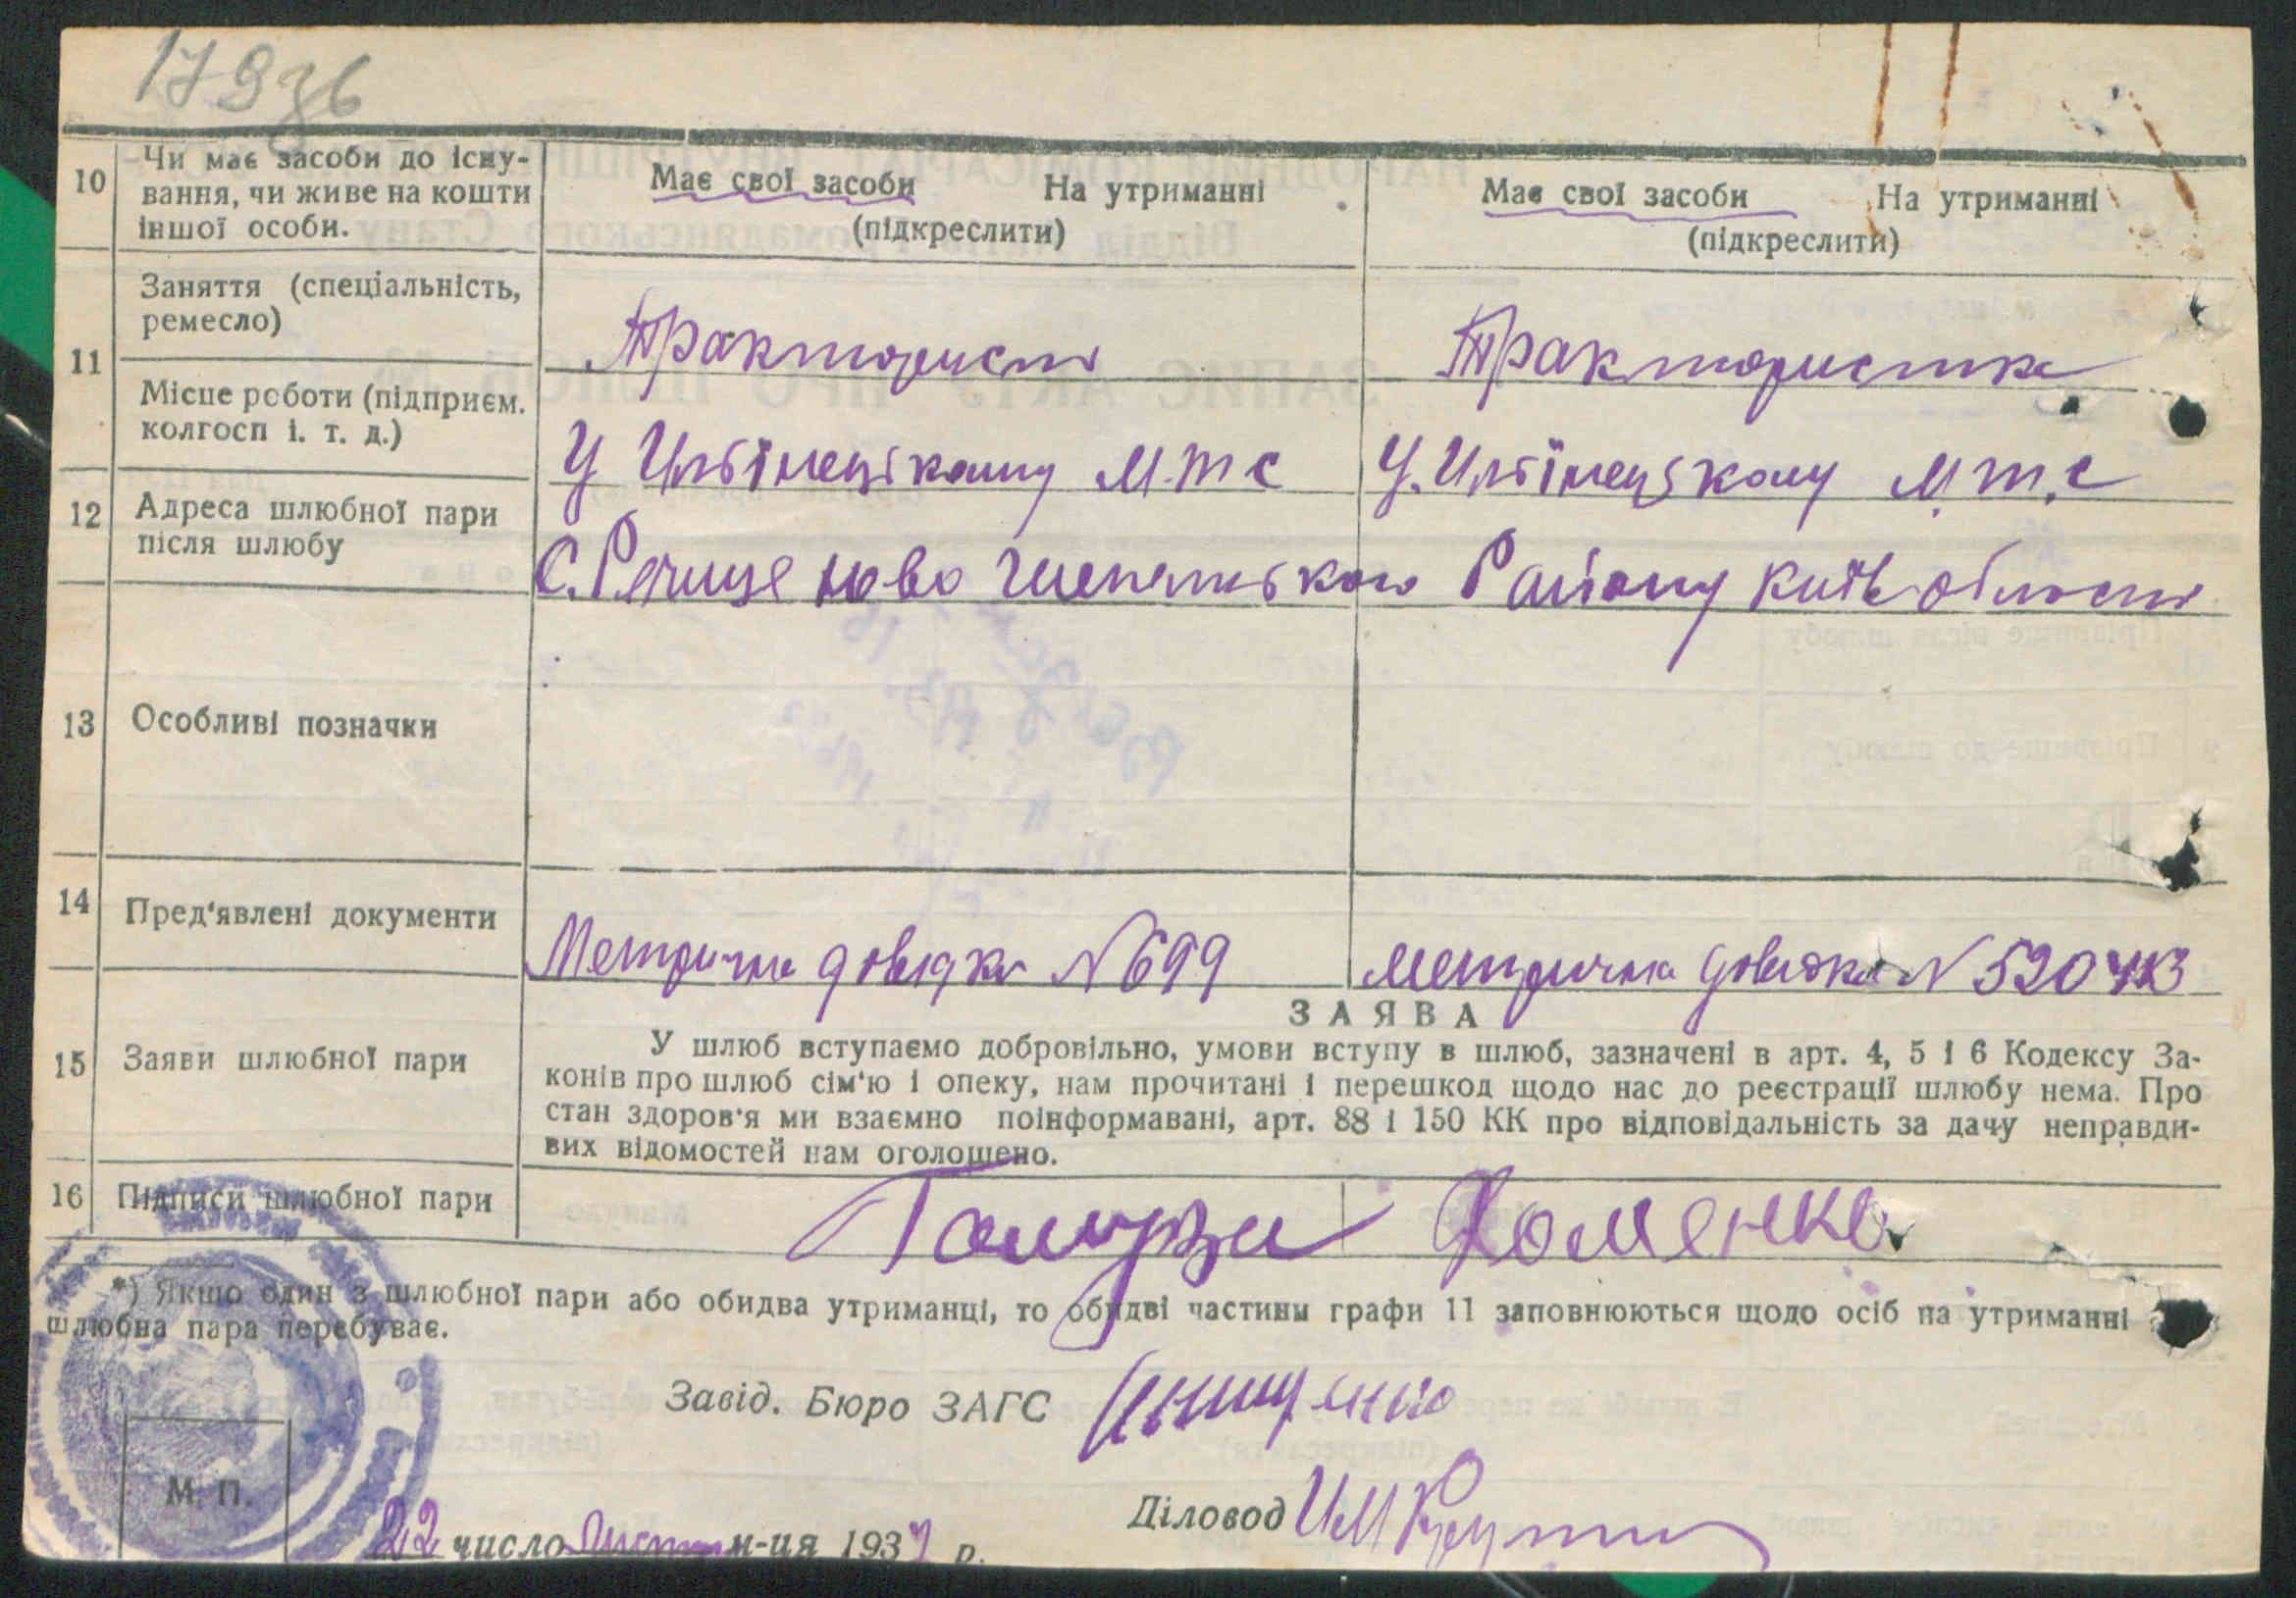 10 Чи має засоби до існу-
вання, чи живе на кошти
іншої особи.
Має свої засоби На утриманні
(підкреслити)
Має свої засоби На утриманні
(підкреслити)
11 Заняття (спеціальність,
ремесло)
Тракторист
Трактористка
Місце роботи (підприєм.
колгосп і. т. д.)
У М.Т.С
У. М.Т.С
12 Адреса шлюбної пари
після шлюбу
С. Ново Району Київ області
13 Особливі позначки
14 Пред'явлені документи
Метрична довідка N 699
Метрична довідка N
15 Заяви шлюбної пари
ЗАЯВА
У шлюб вступаємо добровільно, умови вступу в шлюб, зазначені в арт. 4, 5 і 6 Кодексу За-
конів про шлюб сім'ю і опеку, нам прочитані і перешкод щодо нас до реєстрації шлюбу нема. Про
стан здоров'я ми взаємно поінформавані, арт. 88 і 150 КК про відповідальність за дачу неправди-
вих відомостей нам оголошено.
16 Підписи шлюбної пари
Хоменко
*) Якщо один з шлюбної пари або обидва утриманці, то обидві частины графи 11 заповнюються щодо осіб на утриманні
шлюбна пара перебуває.
Завід. Бюро ЗАГС
Діловод
М. П.
22 число м-ця 193 р.